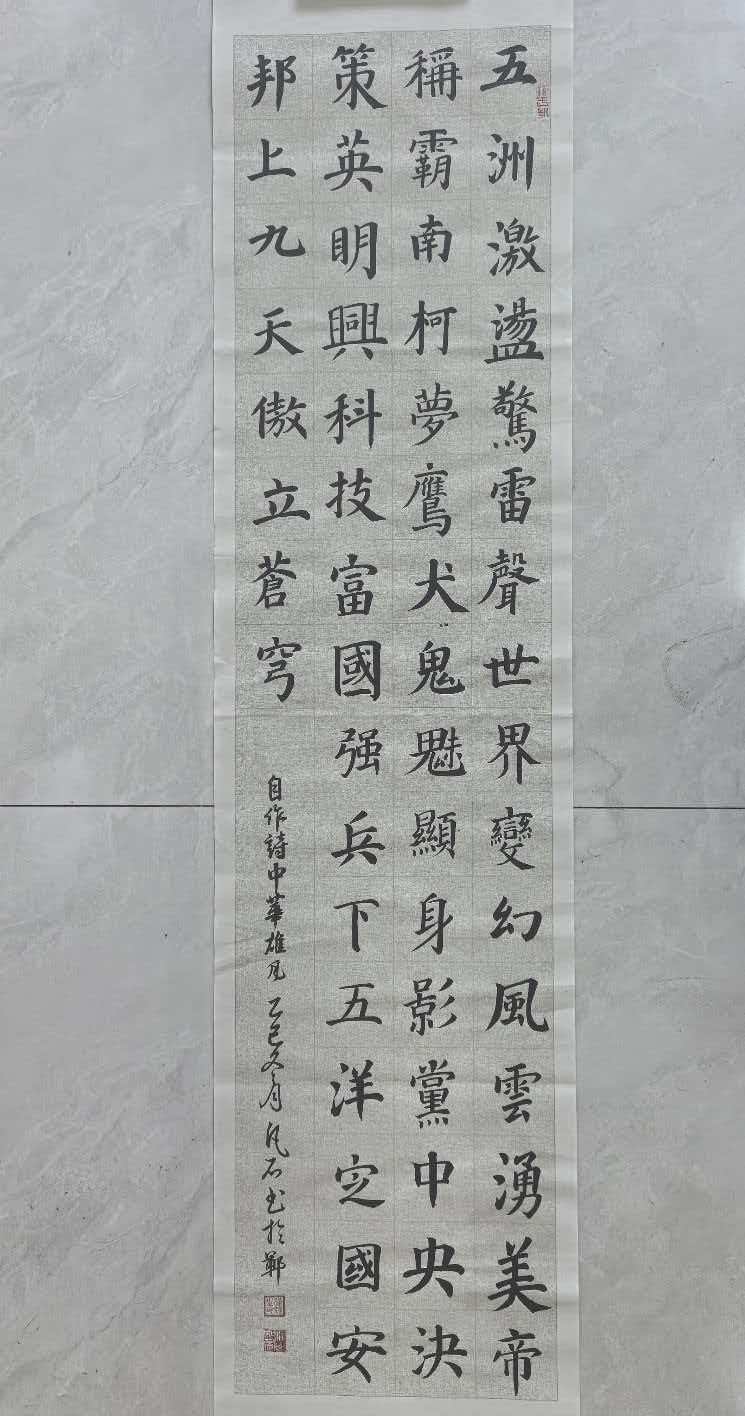 五洲激盪驚雷聲世界變幻風雲湧美帝
稱霸南柯夢鷹犬鬼魅顯身影黨中央決
策英明興科技富國强兵下五洋定國安
邦上九天傲立蒼穹
自作詩中華雄風乙巳冬月凡石书於鄭